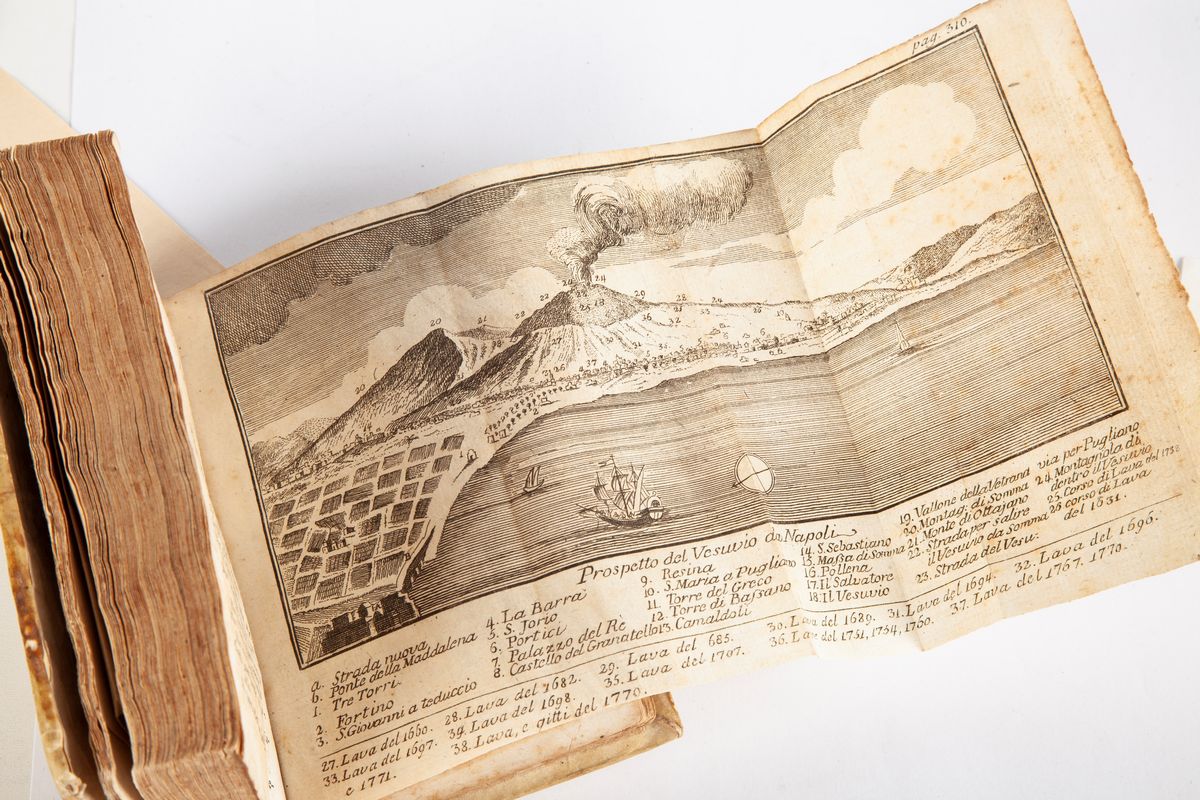 pag. 310.
Prospetto del Vesuvio da Napoli
a. Strada nuova
b. Ponte della Maddalena
1. Tre Torri
2. Fortino
3. S. Giovanni a teduccio
4. La Barra
5. S. Jorio
6. Portici
7. Palazzo del Re
8. Castello del Granatello
9. Resina
10. S. Maria a Pugliano
11. Torre del Greco
12. Torre di Bassano
13. Camaldoli
14. S. Sebastiano
15. Massa di Somma
16. Pollena
17. Il Salvatore
18. Il Vesuvio
19. Vallone della Vetrana
20. Montag. di Somma
21. Monte di Ottajano
22. Strada per salire
il Vesuvio da Somma
23. Strada del Vesuv.
via per Pugliano
24. Montagnola di
dentro il Vesuvio
25. Corso di Lava del
26 corso de Lava
del 1631.
27. Lava del 1660. 28. Lava del 1682. 29. Lava del 685. 30. Lava del 1689. 31. Lava del 1694. 32. Lava del 1696.
33. Lava del 1697. 34. Lava del 1698. 35. Lava del 1707. 36. Lava del 1751, 1754, 1760. 37. Lava del 1767. 1770.
e 1771. 38. Lava, e gitti del 1770.